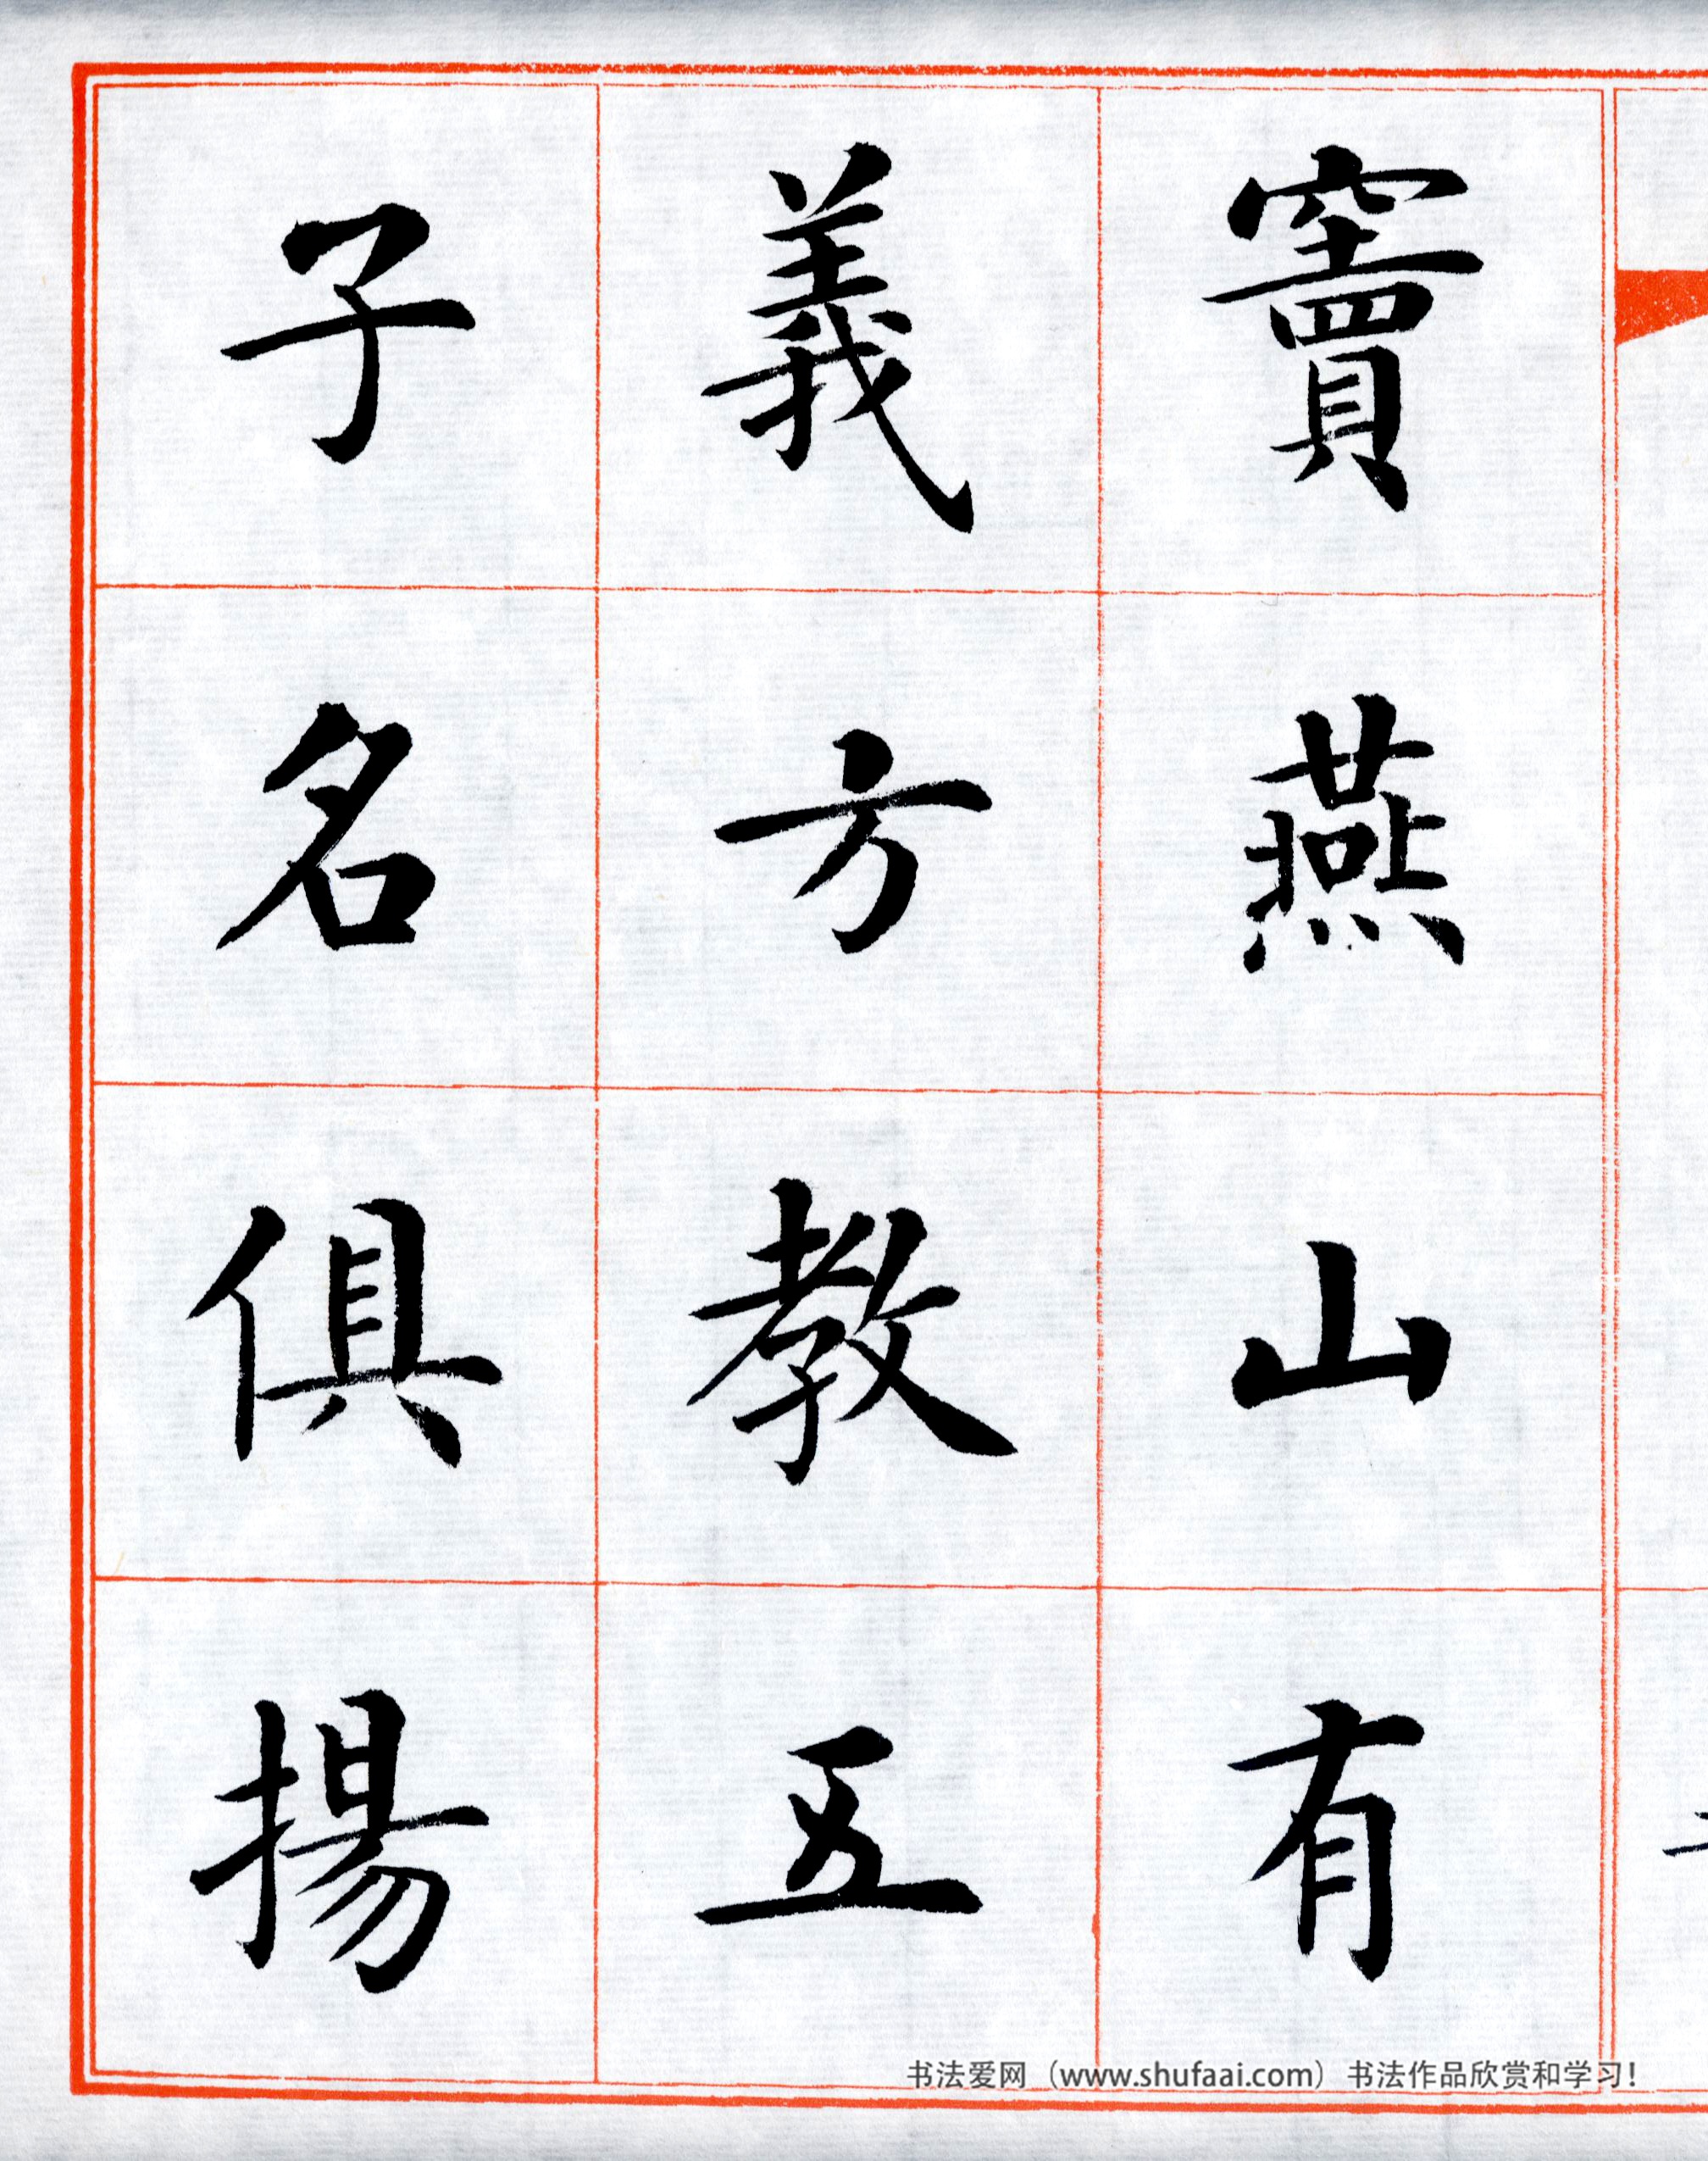 竇燕山有
義方教五
子名俱揚
书法爱网（www.shufaai.com）书法作品欣赏和学习！